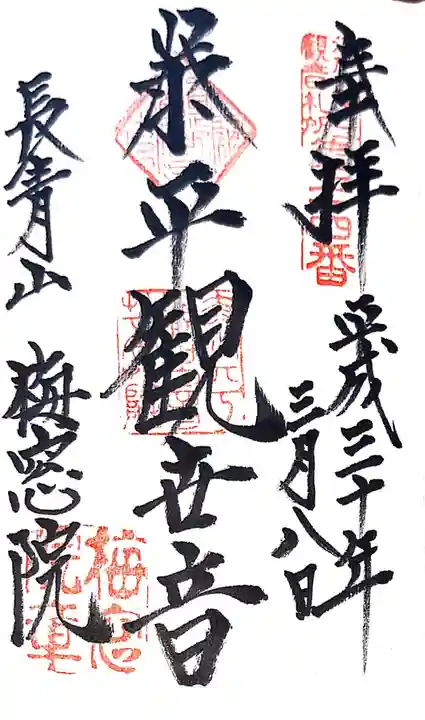 奉拝
平成三十年
三月八日
泰平観世音
長青山 梅窓院
梅窓
院章